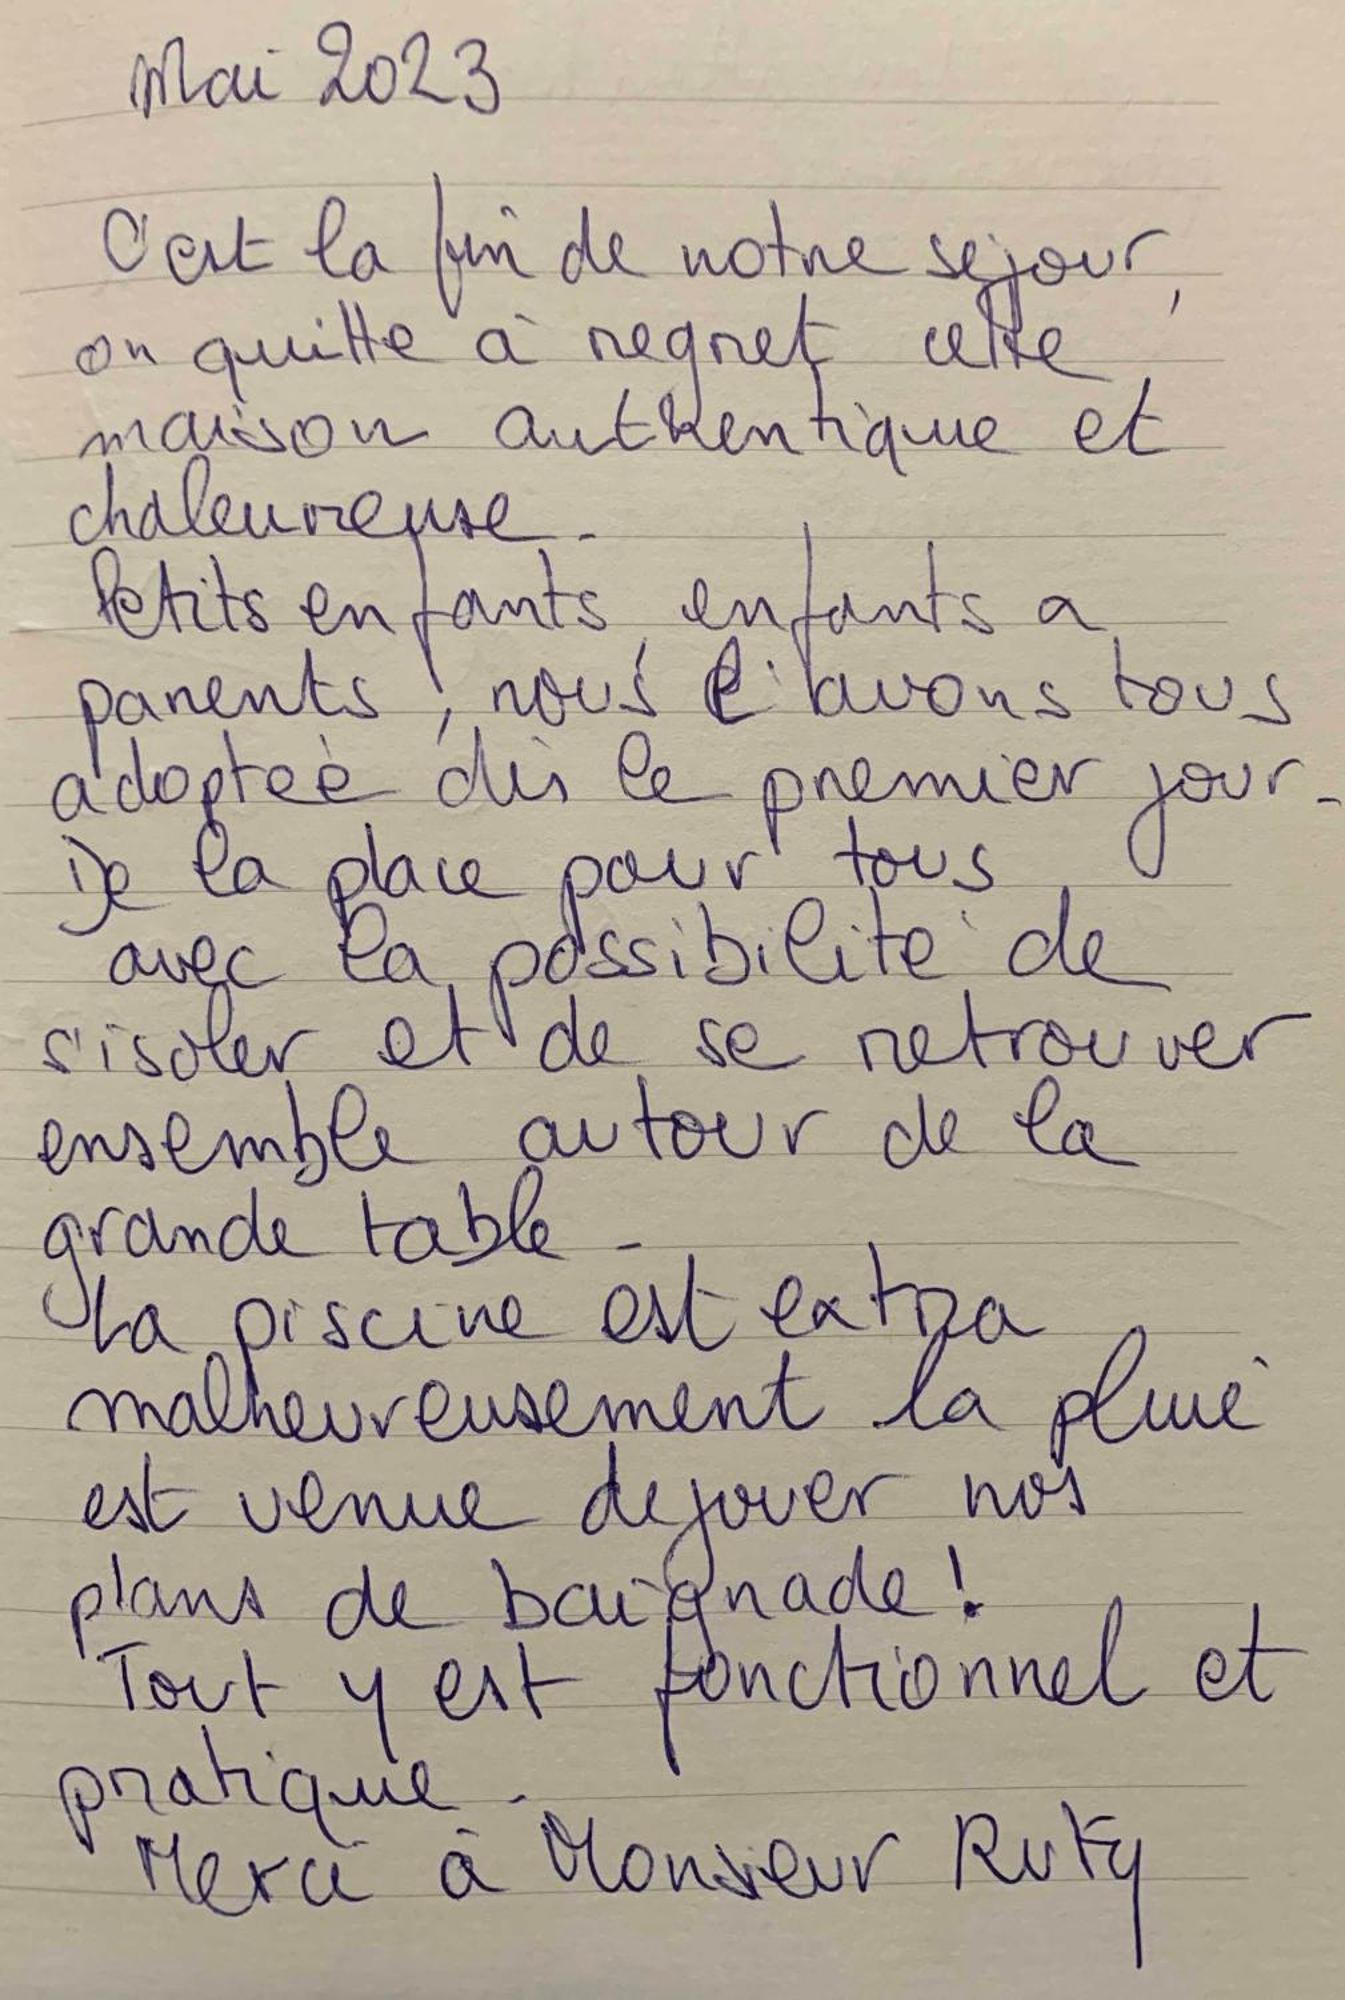 Mai 2023
C'est la fin de notre sejour,
on quitte à regret cette
maison authentique et
chaleureuse.
Petits enfants, enfants a
parents, nous l'avons tous
adoptée dès le premier jour.
De la place pour tous
avec la possibilité de
s'isoler et de se retrouver
ensemble autour de la
grande table.
La piscine est extra
malheureusement la pluie
est venue dejouer nos
plans de baignade !
Tout y est fonctionnel et
pratique.
Merci à Monsieur